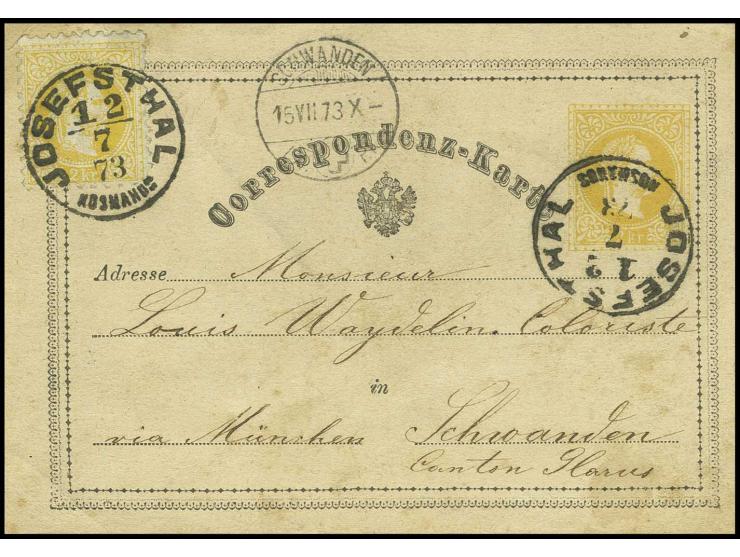 JOSEFSTHAL
12
7
73
KOSMANOS
2 Kr
SCHWANDEN
15 VII 73 X–
Correspondenz-Karte
JOSEFSTHAL
12
7
73
KOSMANOS
Adresse Monsieur
Louis Waydelin. Coloriste
in
via München Schwanden
Canton Glarus